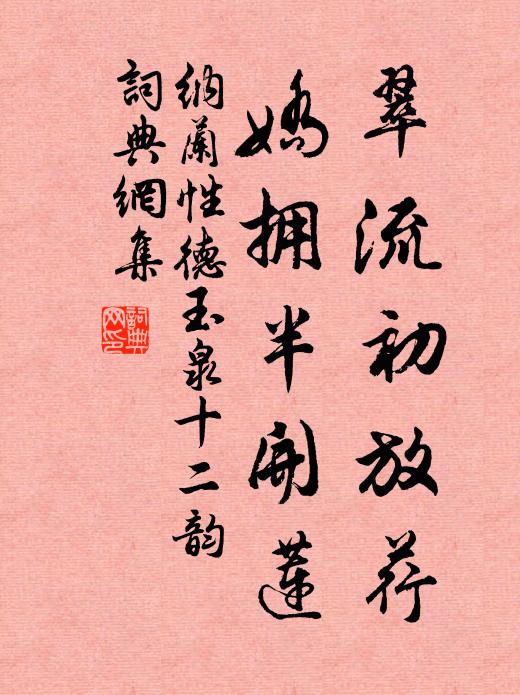 翠流初放荇
嬌拥半開蓮
納蘭性德玉泉十二韵
詞典網集
詞典网印